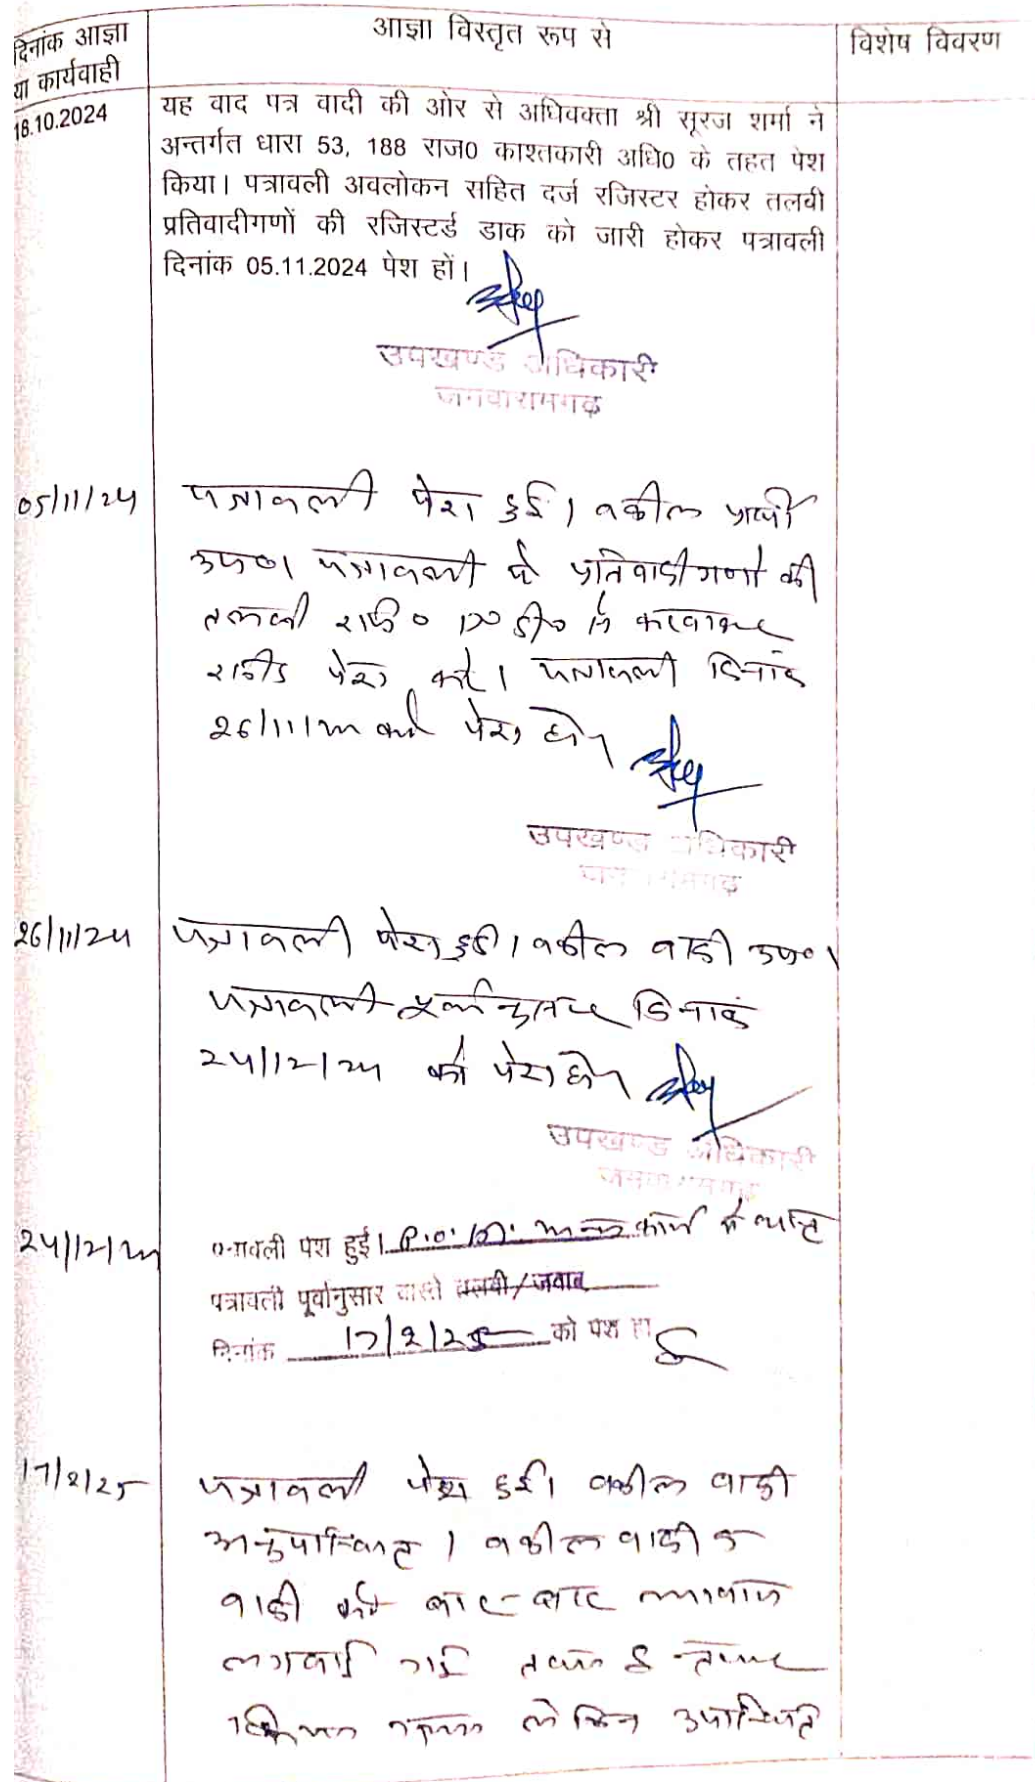 दिनांक आज्ञा या कार्यवाही
आज्ञा विस्तृत रूप से
विशेष विवरण
18.10.2024
यह वाद पत्र वादी की ओर से अधिवक्ता श्री सूरज शर्मा ने
अन्तर्गत धारा 53, 188 राज0 काश्तकारी अधि0 के तहत पेश
किया। पत्रावली अवलोकन सहित दर्ज रजिस्टर होकर तलवी
प्रतिवादीगणों की रजिस्टर्ड डाक को जारी होकर पत्रावली
दिनांक 05.11.2024 पेश हों।
उपखण्ड अधिकारी
जमवारामगढ़
05/11/24
पत्रावली पेश हुई। वकील प्रार्थी
उप0। पत्रावली में प्रतिवादीगणों की
तलबी करवाकर
रसीद पेश करे। पत्रावली दिनांक
26/11/24 को पेश हो।
उपखण्ड अधिकारी
26/11/24
पत्रावली पेश हुई। वकील वादी उप0।
पत्रावली पूर्वानुसार दिनांक
24/12/24 को पेश हो।
उपखण्ड अधिकारी
जमवारामगढ़
24/12/24
पत्रावली पेश हुई। P.O. कार्य में व्यस्त
पत्रावली पूर्वानुसार वास्ते तलवी/जवाब
दिनांक 17/2/25 को पेश हो
17/2/25
पत्रावली पेश हुई। वकील वादी
अनुपस्थित। वकील वादी व
वादी को बार-बार आवाज
लगवाई गई
लेकिन उपस्थित